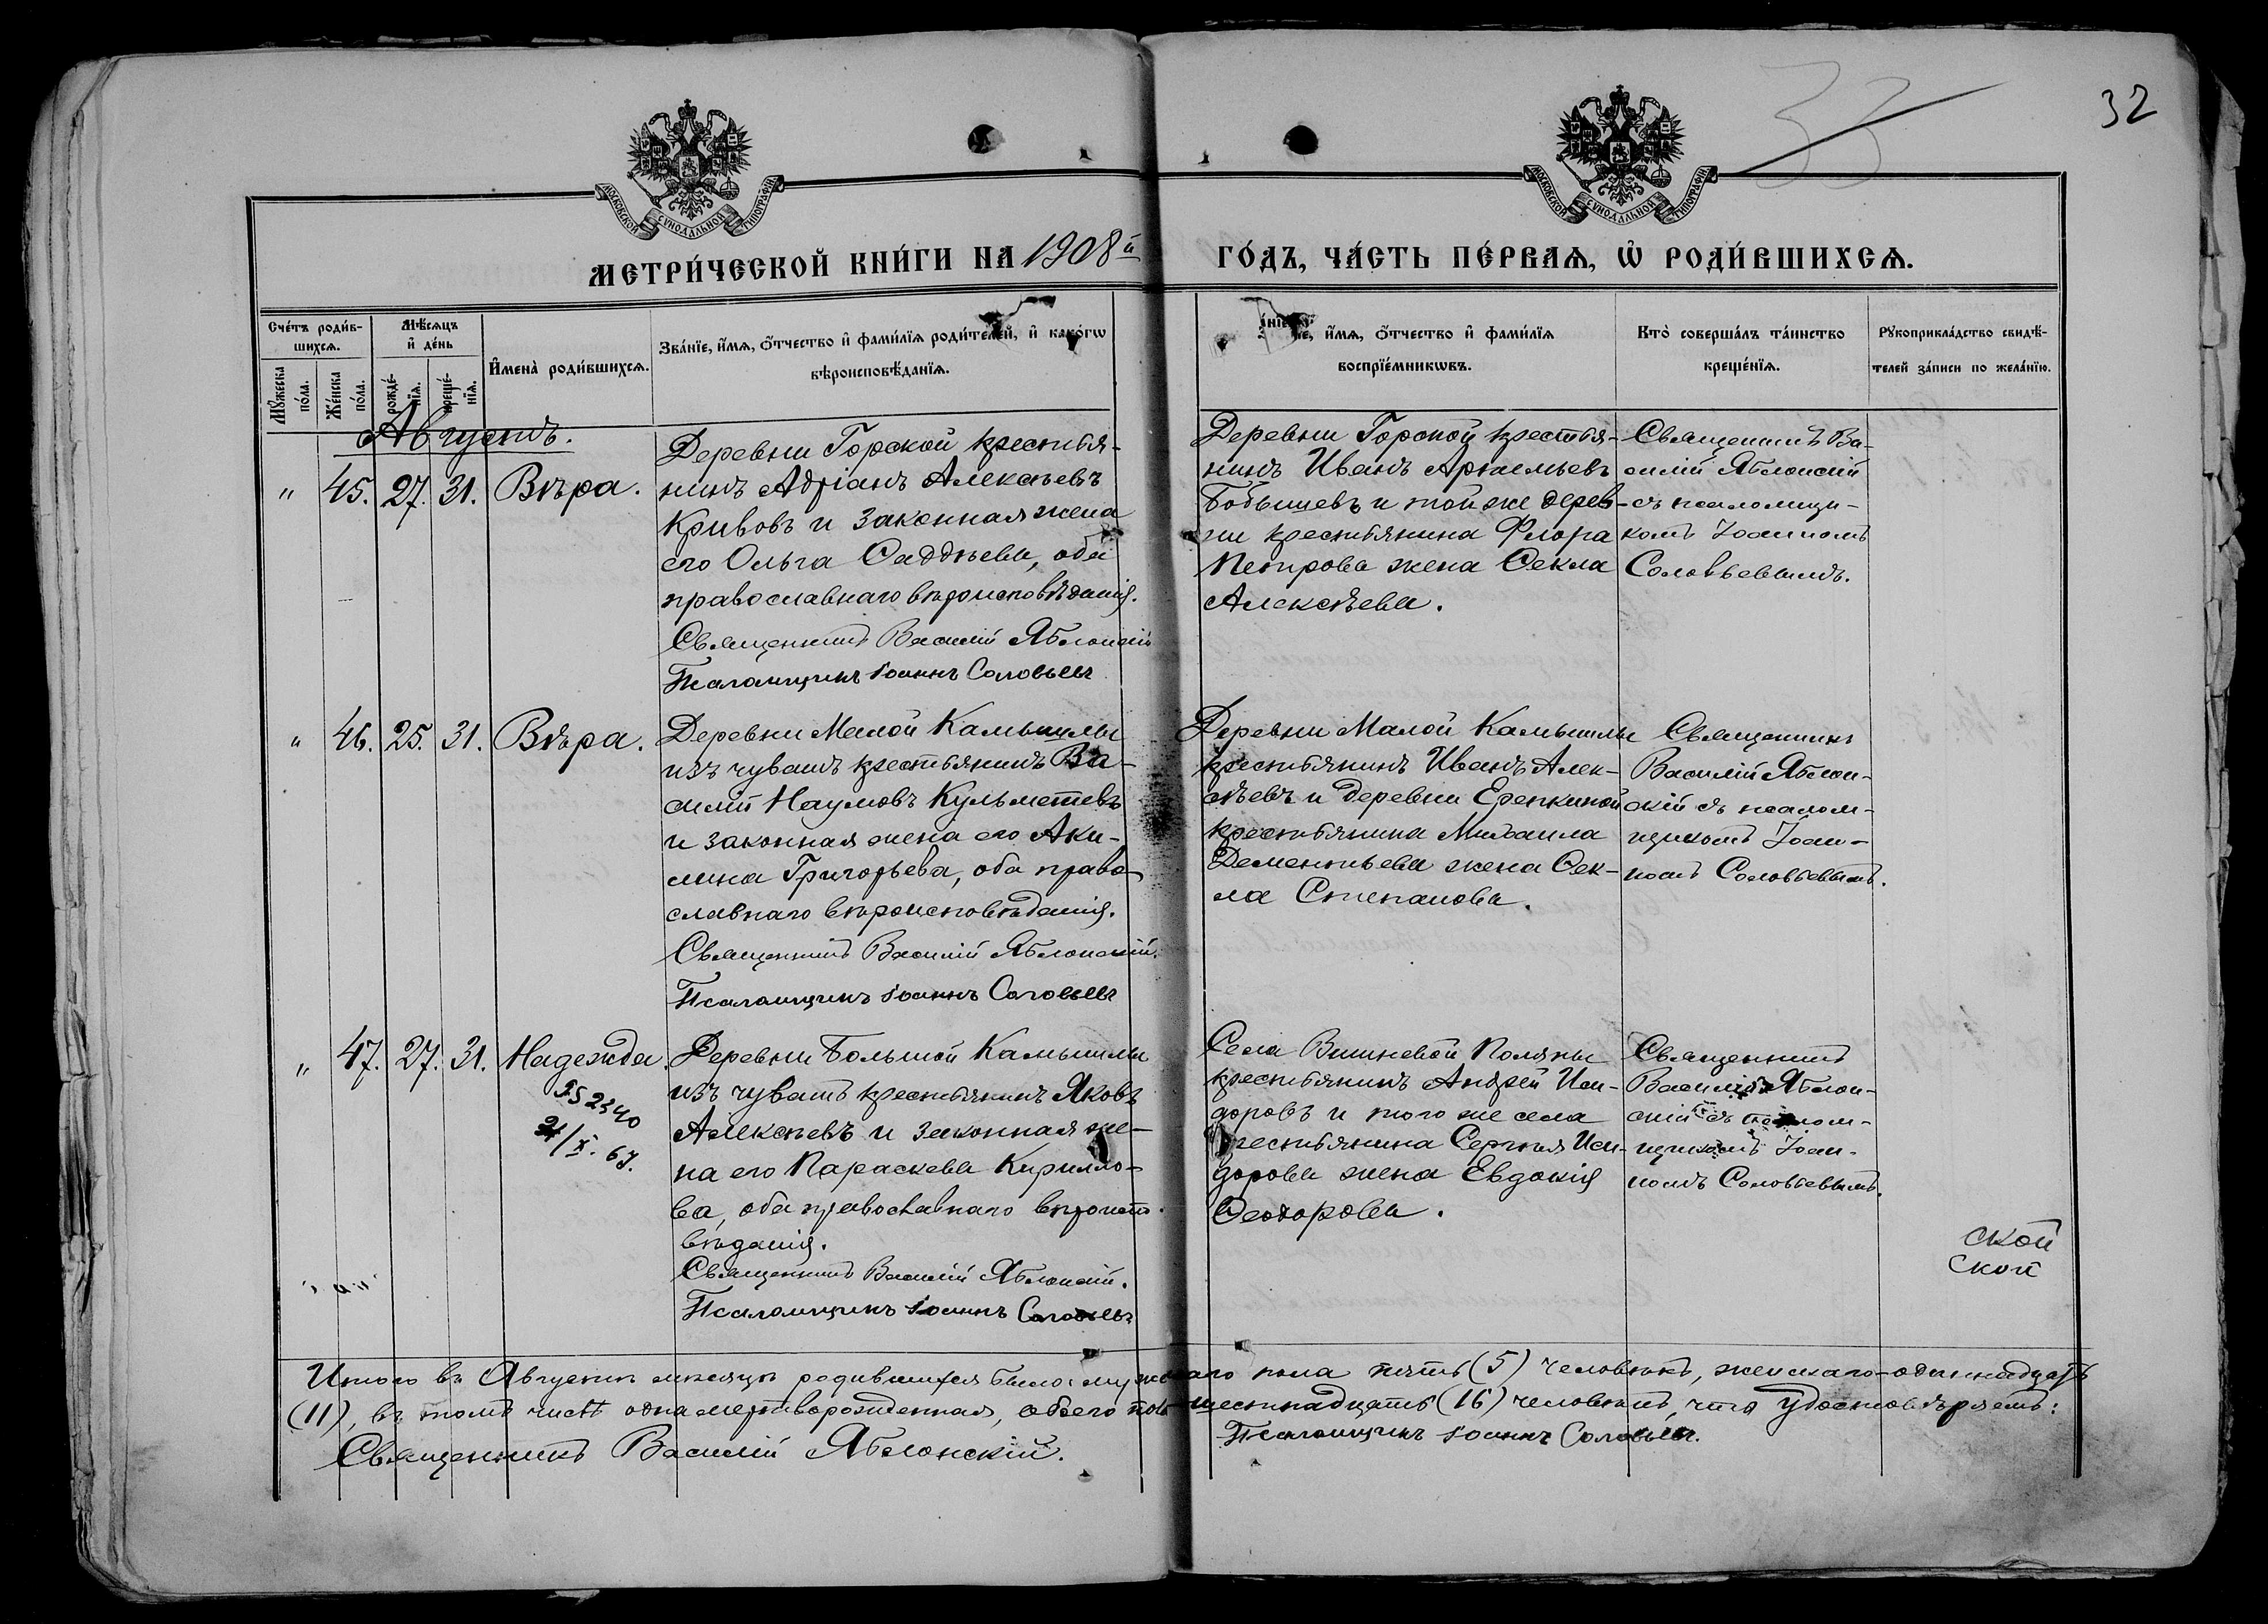 33
32
МОСКОВСКОЙ СѴНОДАЛЬНОЙ ТИПОГРАФІИ.
МОСКОВСКОЙ СѴНОДАЛЬНОЙ ТИПОГРАФІИ.
МЕТРИ́ЧЕСКОЙ КНИ́ГИ НА 1908й ГО́ДЪ, ЧА́СТЬ ПЕ́РВАѦ, Ѡ҆ РОДИ́ВШИХСѦ.
Сче́тъ роди́в-
шихсѧ.
Мѣ́сѧцъ
и҆ де́нь
Мꙋ́жеска
по́ла.
Же́нска
по́ла.
рожде́-
нїѧ.
креще́-
нїѧ.
И҆мена̀ роди́вшихсѧ.
Зва́нїе, и҆́мѧ, ѻ҆́тчество и҆ фами́лїѧ роди́телей, и҆ како́гѡ
вѣроисповѣ́данїѧ.
и҆́мѧ, ѻ҆́тчество и҆ фами́лїѧ
воспрїе́мникѡвъ.
Кто̀ соверша́лъ та́инство
креще́нїѧ.
Рꙋкоприкла́дство свидѣ́-
телей за́писи по жела́нїю.
Августъ.
" 45. 27. 31. Вѣра.
Деревни Горской крестья-
нинъ Адріанъ Алексѣевъ
Кривовъ и законная жена
его Ольга Фаддѣева, оба
православнаго вѣроисповѣданія.
Священникъ Василій Яблонскій
Псаломщикъ Іоаннъ Соловьевъ
Деревни Горской крестья-
нинъ Иванъ Артемьевъ
Бобышевъ и той же дерев-
ни крестьянина Флора
Петрова жена Ѳекла
Алексѣева.
Священникъ Ва-
силій Яблонскій
съ псаломщи-
комъ Іоанномъ
Соловьевымъ.
" 46. 25. 31. Вѣра.
Деревни Малой Камышлы
изъ чувашъ крестьянинъ Ва-
силій Наумовъ Кульметевъ
и законная жена его Аки-
лина Григорьева, оба право-
славнаго вѣроисповѣданія.
Священникъ Василій Яблонскій.
Псаломщикъ Іоаннъ Соловьевъ
Деревни Малой Камышлы
крестьянинъ Иванъ Алек-
сѣевъ и деревни Ерепкиной
крестьянина Михаила
Дементьева жена Ѳек-
ла Степанова.
Священникъ
Василій Яблон-
скій съ псалом-
щикомъ Іоан-
номъ Соловьевымъ.
" 47. 27. 31. Надежда.
Деревни Большой Камышлы
изъ чувашъ крестьянинъ Яковъ
Алексѣевъ и законная же-
на его Параскева Кирилло-
ва, оба православнаго вѣроиспо-
вѣданія.
Священникъ Василій Яблонскій.
Псаломщикъ Іоаннъ Соловьевъ
Села Вишневой Поляны
крестьянинъ Андрей Иси-
доровъ и того же села
крестьянина Сергѣя Иси-
дорова жена Евдокія
Ѳеодорова.
Священникъ
Василій Яблон-
скій съ псалом-
щикомъ Іоан-
номъ Соловьевымъ.
ской
ской
Итого въ Августѣ мѣсяцѣ родившихся было: мужескаго пола пять (5) человѣкъ, женскаго-одиннадцать
(11), въ томъ числѣ одна мертворожденная, обоего пола шестнадцать (16) человѣкъ, что удостовѣряетъ:
Священникъ Василій Яблонскій.
Псаломщикъ Іоаннъ Соловьевъ.